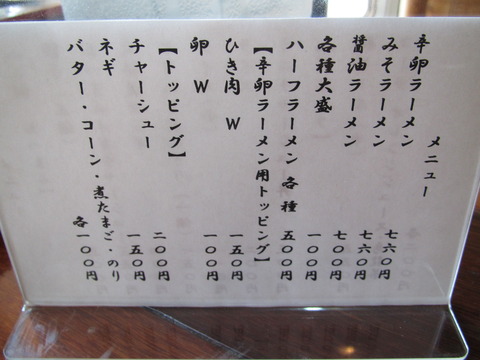 メニュー
辛卵ラーメン 七六〇円
みそラーメン 七六〇円
醤油ラーメン 七〇〇円
各種大盛 一〇〇円
ハーフラーメン 各種 五〇〇円
【辛卵ラーメン用トッピング】
ひき肉 W 一五〇円
卵 W 一〇〇円
【トッピング】
チャーシュー 二〇〇円
ネギ 一五〇円
バター・コーン・煮たまご・のり 各一〇〇円